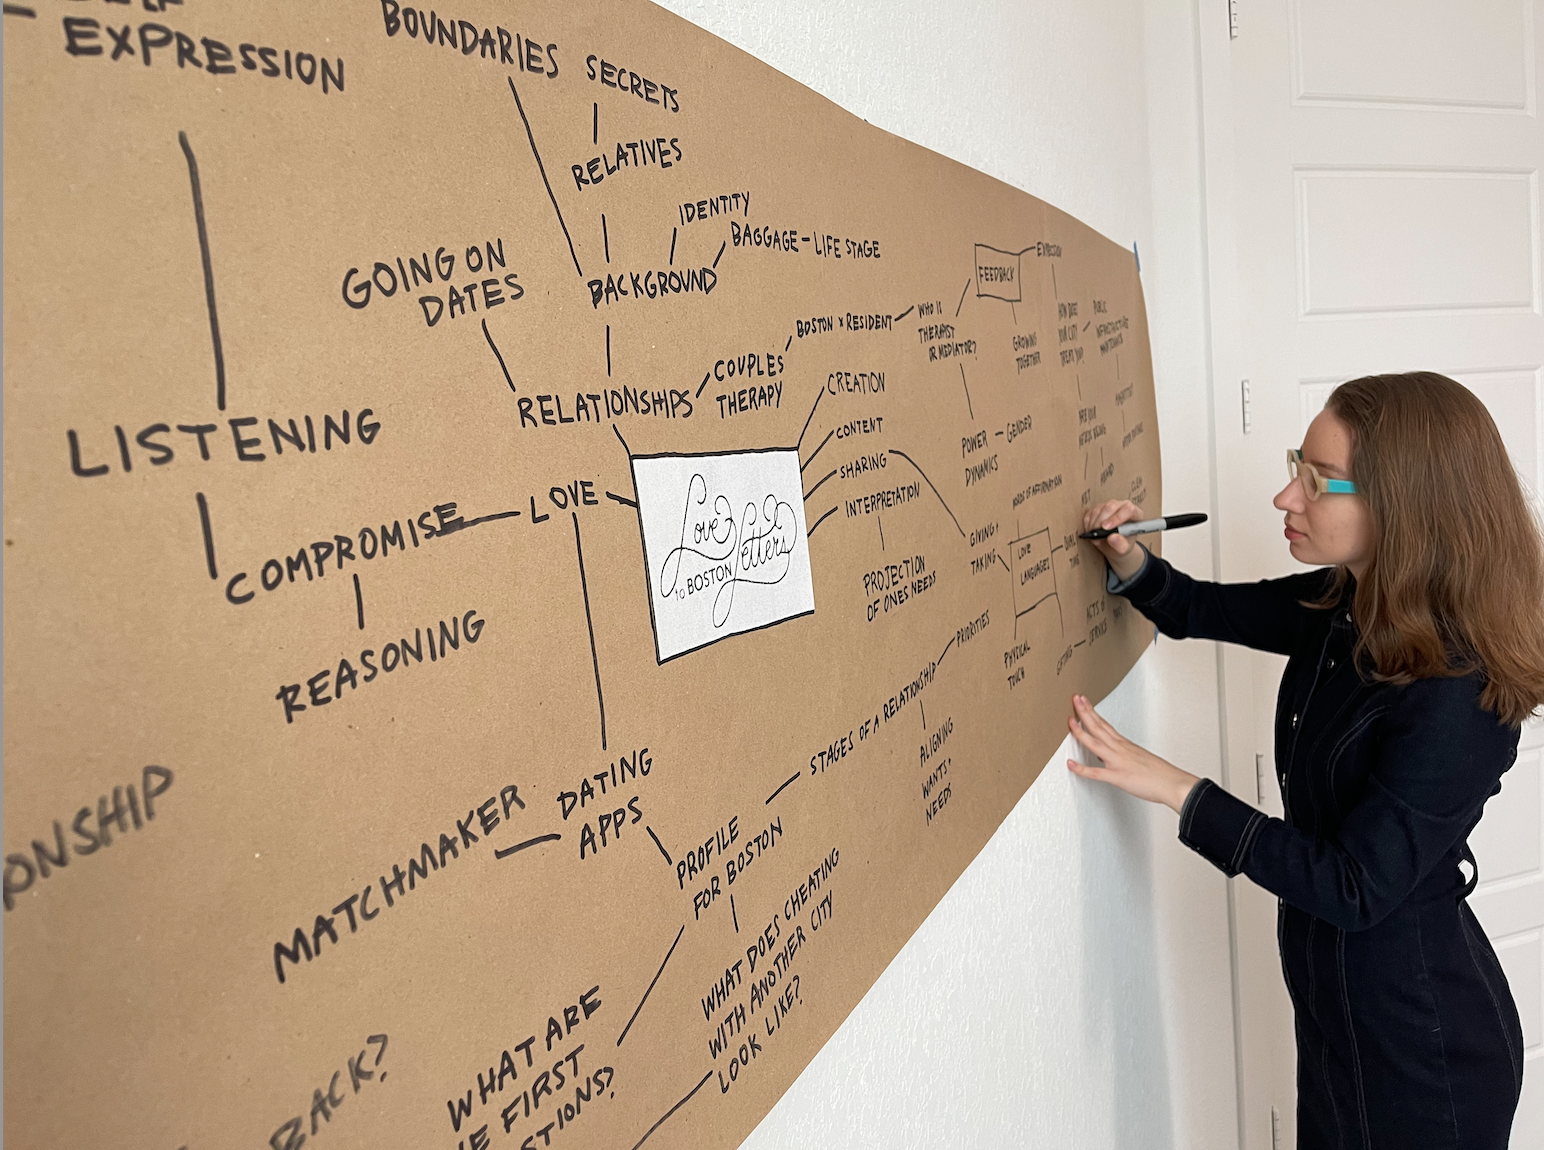 EXPRESSION
BOUNDARIES
SECRETS
RELATIVES
IDENTITY
BAGGAGE - LIFE STAGE
BACKGROUND
GOING ON
DATES
RELATIONSHIPS
COUPLES
THERAPY
BOSTON x RESIDENT
WHO IS
THERAPIST
OR MEDIATOR?
FEEDBACK
GROWING
TOGETHER
HOW DOES
YOUR CITY
TREAT YOU?
PUBLIC
INFRASTRUCTURE
POWER - GENDER
DYNAMICS
CREATION
CONTENT
SHARING
INTERPRETATION
PROJECTION
OF ONES NEEDS
LISTENING
COMPROMISE
LOVE
REASONING
Love
Letters
TO BOSTON
WORDS OF AFFIRMATION
GIVING +
TAKING
LOVE
LANGUAGES
TIME
PHYSICAL
TOUCH
GIFTING
ACTS OF
SERVICE
PRIORITIES
STAGES OF A RELATIONSHIP
ALIGNING
WANTS +
NEEDS
DATING
APPS
MATCHMAKER
PROFILE
FOR BOSTON
WHAT DOES CHEATING
WITH ANOTHER CITY
LOOK LIKE?
WHAT ARE
FIRST
BACK?